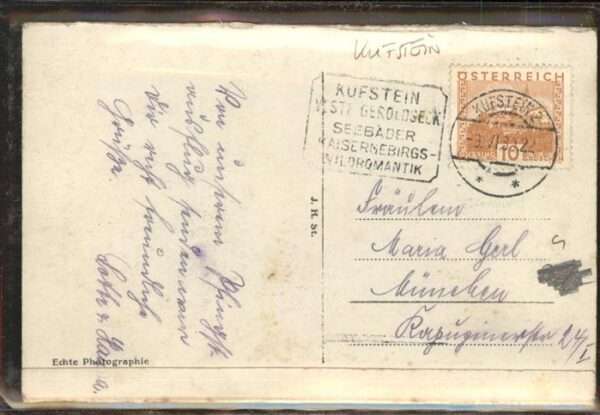 KUFSTEIN
KUFSTEIN
VESTE GEROLDSECK
SEEBÄDER
KAISERGEBIRGS-
WILDROMANTIK
ÖSTERREICH
KUFSTEIN
10
Von unserem Pfingst-
ausflug senden wir
die recht herzliche
Grüße.
J. H. St.
Echte Photographie
Fräulein
Maria Gerl
München
Kapuzinerstr 24/I